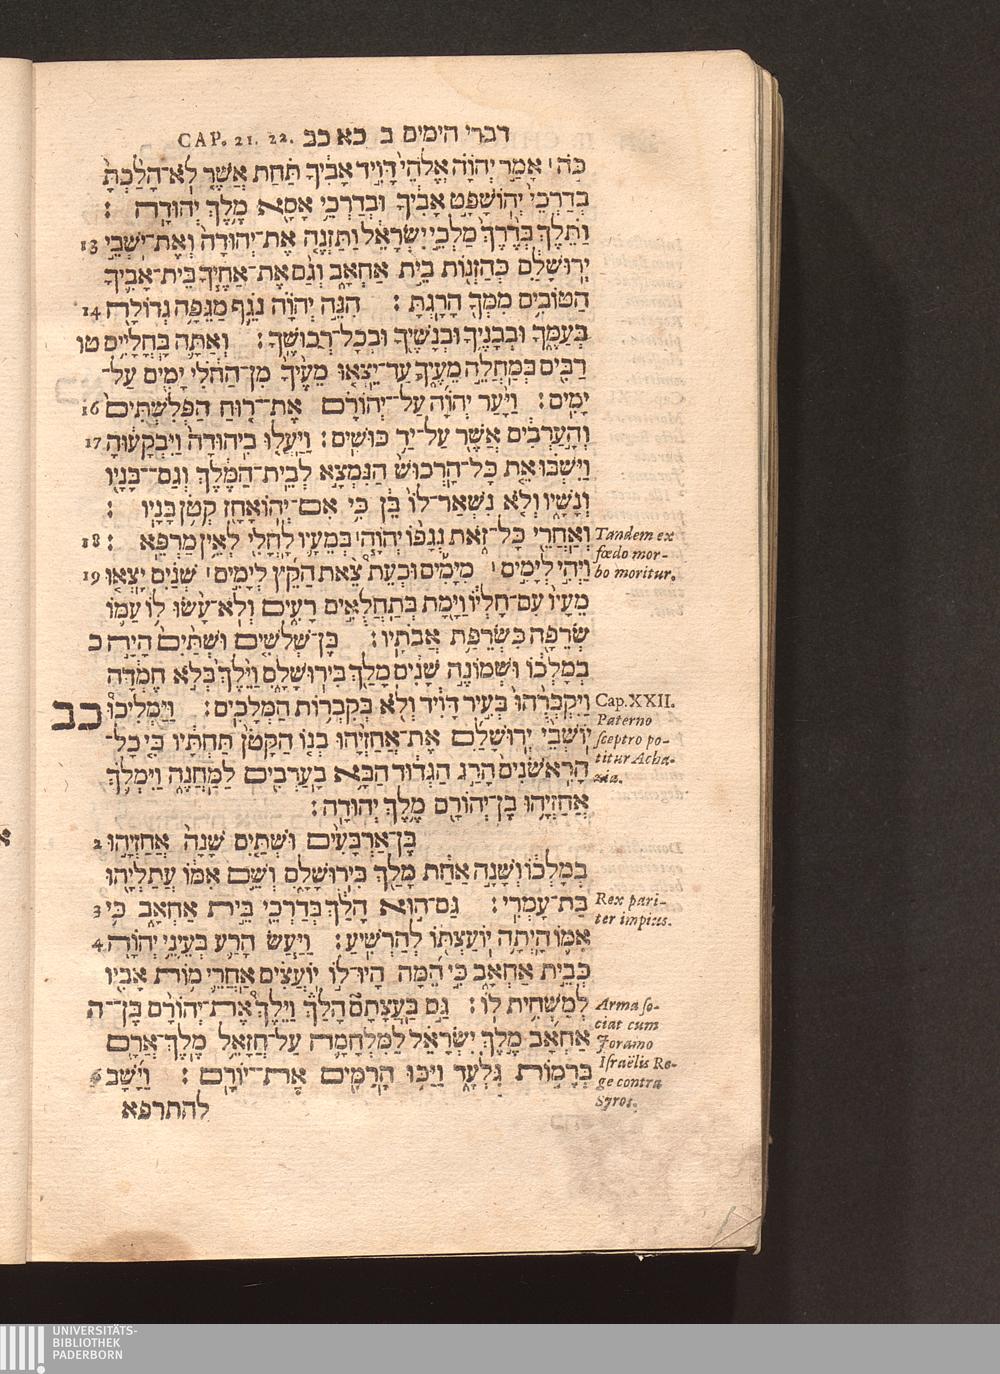 דברי הימים ב כא כב CAP. 21. 22.
כֹּה׀ אָמַר יְהוָֹה אֱלֹהֵי דָּוִיד אָבִיךָ תַּחַת אֲשֶׁר לֹא־הָלַכְתָּ
בְּדַרְכֵי יְהוֹשָׁפָט אָבִיךָ וּבְדַרְכֵי אָסָא מֶלֶךְ יְהוּדָה ׃
וַתֵּלֶךְ בְּדֶרֶךְ מַלְכֵי יִשְׂרָאֵל וַתַּזְנֶה אֶת־יְהוּדָה וְאֶת־יֹשְׁבֵי 13
יְרוּשָׁלִַם כְּהַזְנוֹת בֵּית אַחְאָב וְגַם אֶת־אַחֶיךָ בֵית־אָבִיךָ
הַטּוֹבִים מִמְּךָ הָרָגְתָּ ׃ הִנֵּה יְהוָֹה נֹגֵף מַגֵּפָה גְדוֹלָה 14
בְּעַמֶּךָ וּבְבָנֶיךָ וּבְנָשֶׁיךָ וּבְכָל־רְכוּשֶׁךָ ׃ וְאַתָּה בָּחֳלָיִים טו
רַבִּים בְּמַחֲלֵה מֵעֶיךָ עַד־יֵצְאוּ מֵעֶיךָ מִן־הַחֹלִי יָמִים עַל־
יָמִים ׃ וַיָּעַר יְהוָֹה עַל־יְהוֹרָם אֵת־רוּחַ הַפְּלִשְׁתִּים 16
וְהָעַרְבִים אֲשֶׁר עַל־יַד כּוּשִׁים ׃ וַיַּעֲלוּ בִיהוּדָה וַיִּבְקָעוּהָ 17
וַיִּשְׁבּוּ אֵת כָּל־הָרְכוּשׁ הַנִּמְצָא לְבֵית־הַמֶּלֶךְ וְגַם־בָּנָיו
וְנָשָׁיו וְלֹא נִשְׁאַר־לוֹ בֵּן כִּי אִם־יְהוֹאָחָז קְטֹן בָּנָיו ׃
וְאַחֲרֵי כָּל־זֹאת נְגָפוֹ יְהוָֹה׀ בְּמֵעָיו לָחֳלִי לְאֵין מַרְפֵּא ׃ 18
Tandem ex
fœdo mor-
bo moritur.
וַיְהִי לְיָמִים׀ מִיָּמִים וּכְעֵת צֵאת הַקֵּץ לְיָמִים׀ שְׁנַיִם יָצְאוּ 19
מֵעָיו עִם־חָלְיוֹ וַיָּמָת בְּתַחֲלֻאִים רָעִים וְלֹא־עָשׂוּ לוֹ עַמּוֹ
שְׂרֵפָה כִּשְׂרֵפַת אֲבֹתָיו ׃ בֶּן־שְׁלֹשִׁים וּשְׁתַּיִם הָיָה כ
בְמָלְכוֹ וּשְׁמוֹנֶה שָׁנִים מָלַךְ בִּירוּשָׁלִָם וַיֵּלֶךְ בְּלֹא חֶמְדָּה
וַיִּקְבְּרֻהוּ בְּעִיר דָּוִיד וְלֹא בְּקִבְרוֹת הַמְּלָכִים ׃ וַיַּמְלִיכוּ כב
Cap. XXII.
Paterno
sceptro po-
titur Acha-
zia.
יוֹשְׁבֵי יְרוּשָׁלִַם אֶת־אֲחַזְיָהוּ בְנוֹ הַקָּטֹן תַּחְתָּיו כִּי כָל־
הָרִאשֹׁנִים הָרַג הַגְּדוּד הַבָּא בָעַרְבִים לַמַּחֲנֶה וַיִּמְלֹךְ
אֲחַזְיָהוּ בֶן־יְהוֹרָם מֶלֶךְ יְהוּדָה ׃
בֶּן־אַרְבָּעִים וּשְׁתַּיִם שָׁנָה אֲחַזְיָהוּ 2
בְמָלְכוֹ וְשָׁנָה אַחַת מָלַךְ בִּירוּשָׁלִָם וְשֵׁם אִמּוֹ עֲתַלְיָהוּ
בַּת־עָמְרִי ׃ גַּם־הוּא הָלַךְ בְּדַרְכֵי בֵּית אַחְאָב כִּי 3
Rex pari-
ter impius.
אִמּוֹ הָיְתָה יוֹעַצְתּוֹ לְהַרְשִׁיעַ ׃ וַיַּעַשׂ הָרַע בְּעֵינֵי יְהוָֹה 4
כְּבֵית אַחְאָב כִּי הֵמָּה הָיוּ־לוֹ יוֹעֲצִים אַחֲרֵי מוֹת אָבִיו
לְמַשְׁחִית לוֹ ׃ גַּם בַּעֲצָתָם הָלַךְ וַיֵּלֶךְ אֶת־יְהוֹרָם בֶּן־ ה
Arma so-
ciat cum
Joramo
Israëlis Re-
ge contra
Syros.
אַחְאָב מֶלֶךְ יִשְׂרָאֵל לַמִּלְחָמָה עַל־חֲזָאֵל מֶלֶךְ־אֲרָם
בְּרָמוֹת גִּלְעָד וַיַּכּוּ הָרַמִּים אֶת־יוֹרָם ׃ וַיָּשָׁב 6
להתרפא
UNIVERSITÄTS-
BIBLIOTHEK
PADERBORN